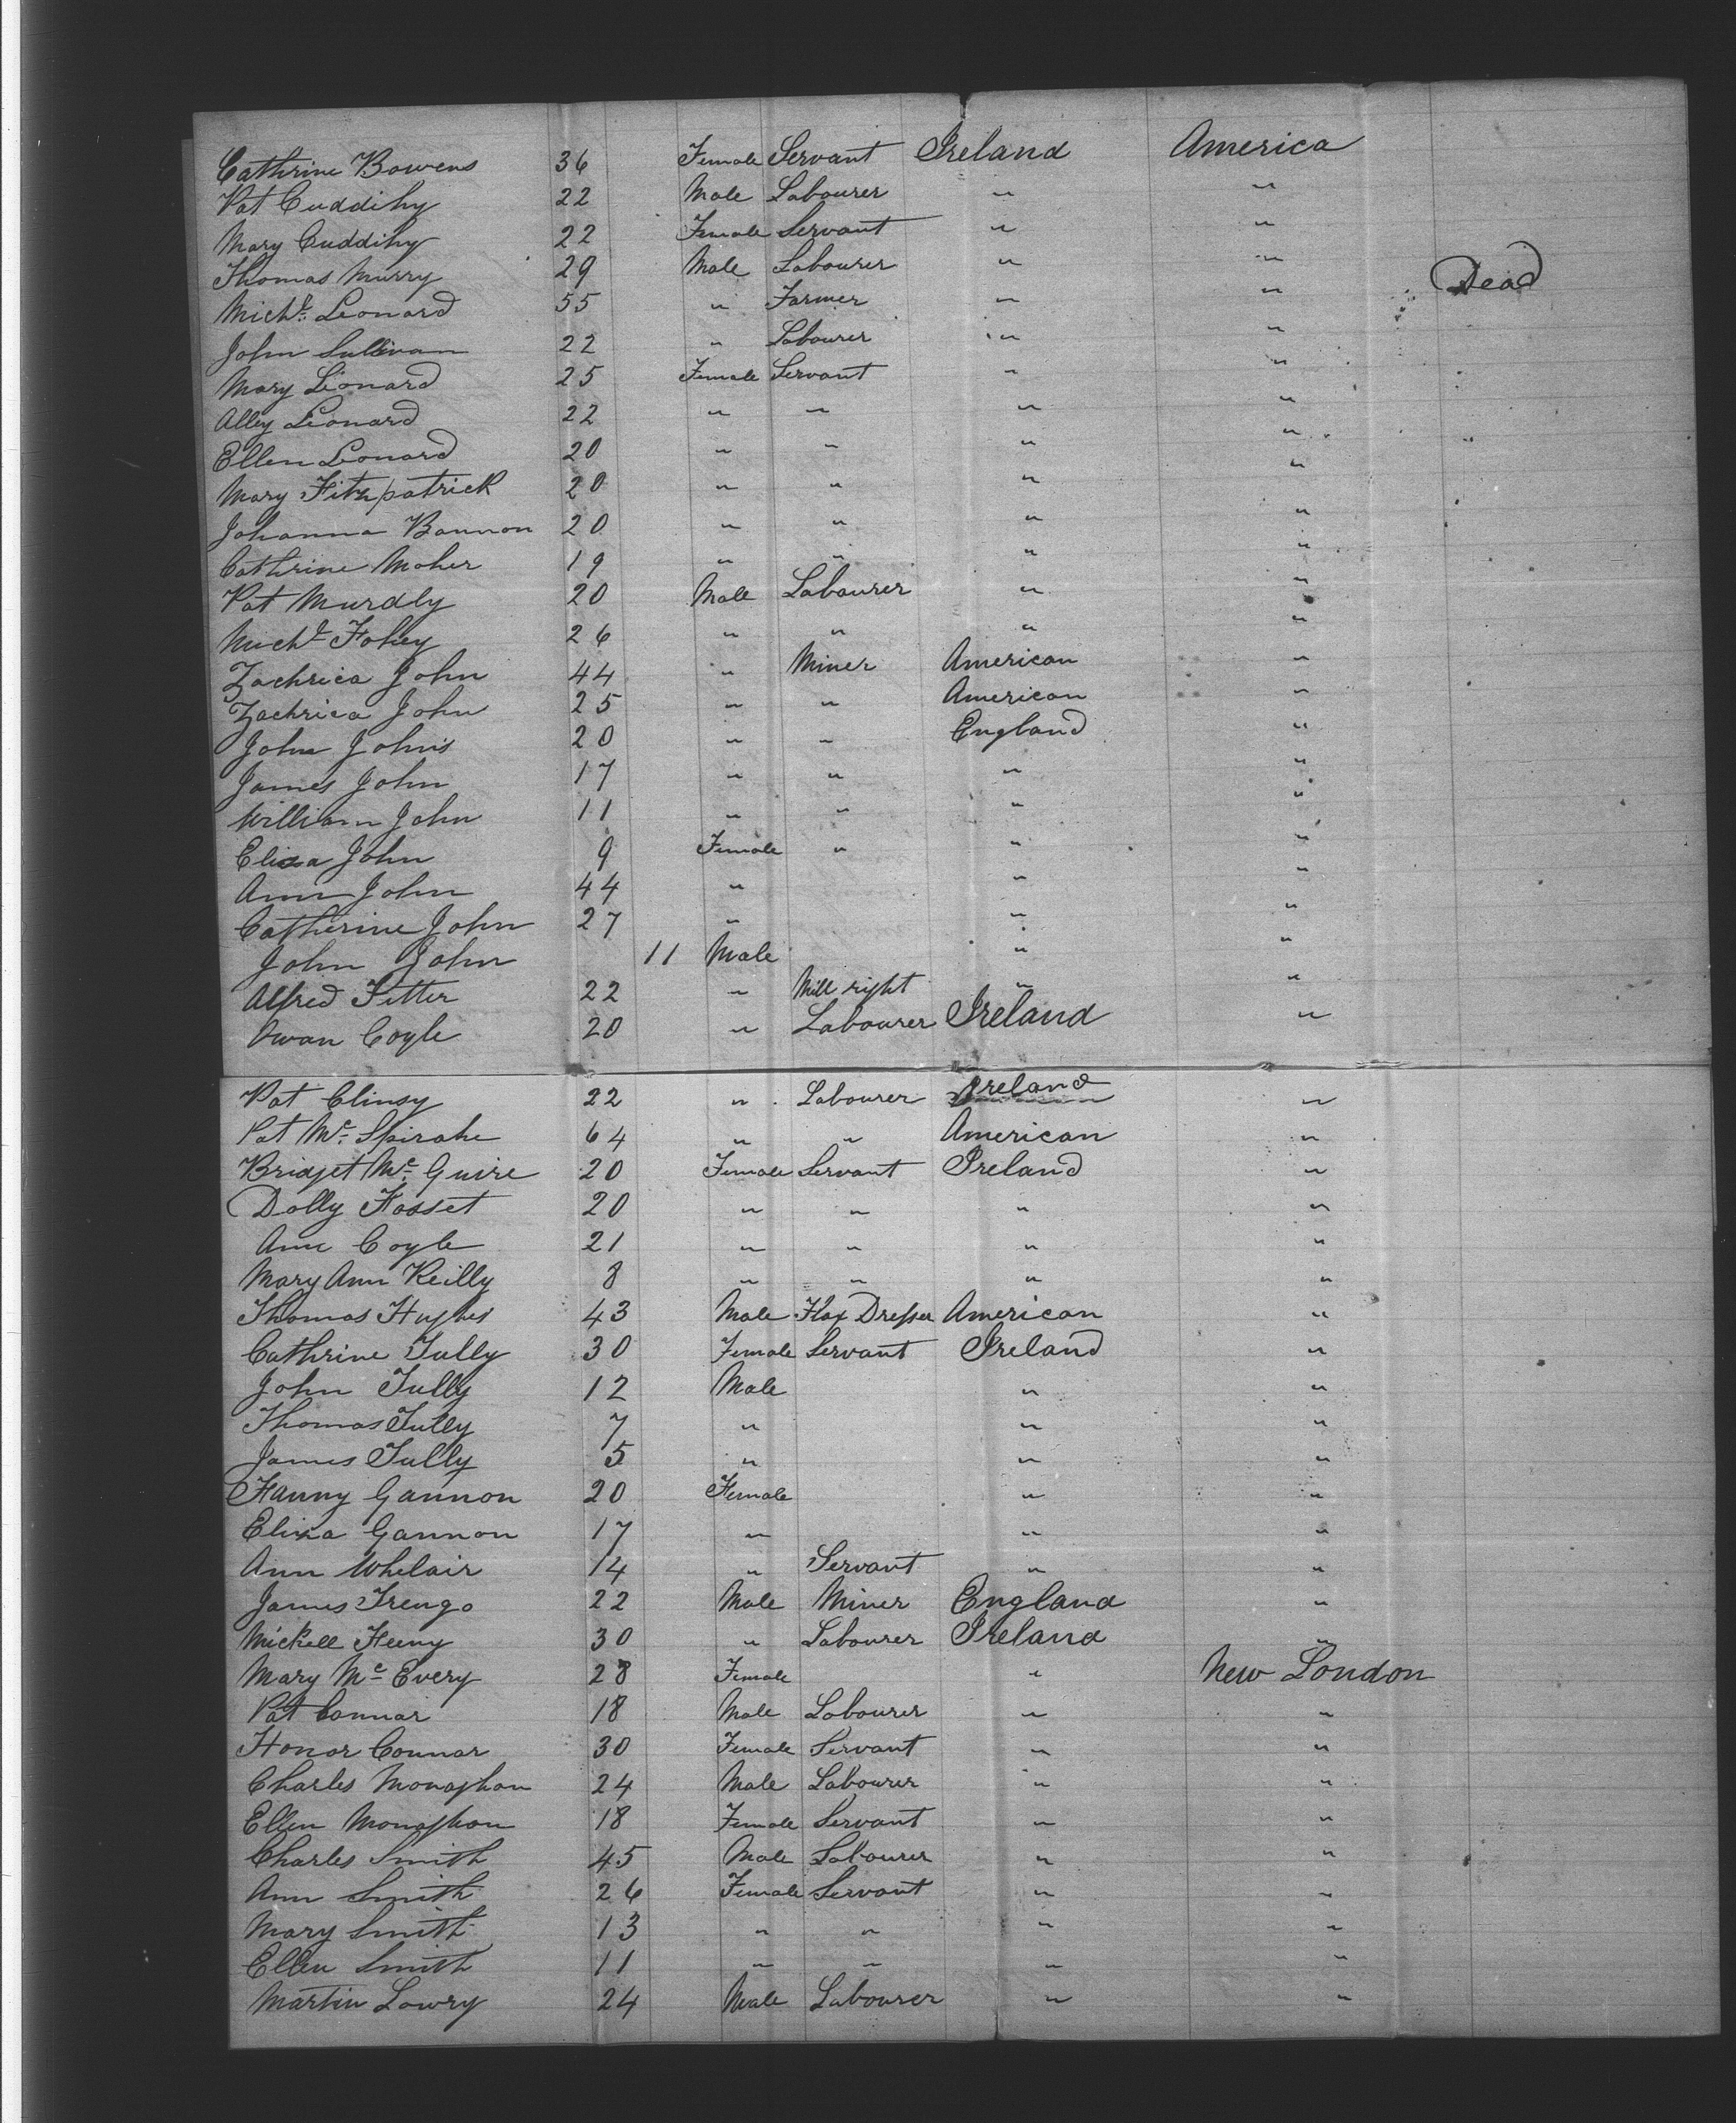 Cathrine Bowens 36 Female Servant Ireland America
Pat Cuddihy 22 Male Labourer " "
Mary Cuddihy 22 Female Servant " "
Thomas Murry 29 Male Labourer " "
Michl. Leonard 55 " Farmer " " Dead
John Sullivan 22 " Labourer " "
Mary Leonard 25 Female Servant " "
Alley Leonard 22 " " " "
Ellen Leonard 20 " " " "
Mary Fitzpatrick 20 " " " "
Johanna Bannon 20 " " " "
Cathrine Moher 19 " " " "
Pat Murdly 20 Male Labourer " "
Michl Fohey 26 " " " "
Zachrica John 44 " Miner American "
Zachrica John 25 " " American "
John Johns 20 " " England "
James John 17 " " " "
William John 11 " " " "
Eliza John 9 Female " " "
Ann John 44 " " "
Catherine John 27 " " "
John John 11 Male " "
Alfred Fetter 22 " Mill right " "
Owan Coyle 20 " Labourer Ireland "
Pat Clinsy 22 " Labourer Ireland "
Pat Mc 64 " " American "
Bridjet Mc Guire 20 Female Servant Ireland "
Dolly Fosset 20 " " " "
Ann Coyle 21 " " " "
Mary Ann Reilly 8 " " " "
Thomas Hughes 43 Male Flax Dresser American "
Cathrine Tully 30 Female Servant Ireland "
John Tully 12 Male " "
Thomas Tully 7 " " "
James Tully 5 " " "
Fanny Gannon 20 Female " "
Eliza Gannon 17 " " "
Ann Whelair 14 " Servant " "
James Trengo 22 Male Miner England "
Mickell Feeny 30 " Labourer Ireland "
Mary Mc Every 28 Female " New London
Pat Connar 18 Male Labourer " "
Honor Connar 30 Female Servant " "
Charles Monaghan 24 Male Labourer " "
Ellen Monaghan 18 Female Servant " "
Charles Smith 45 Male Labourer " "
Ann Smith 26 Female Servant " "
Mary Smith 13 " " " "
Ellen Smith 11 " " " "
Martin Lowry 24 Male Labourer " "